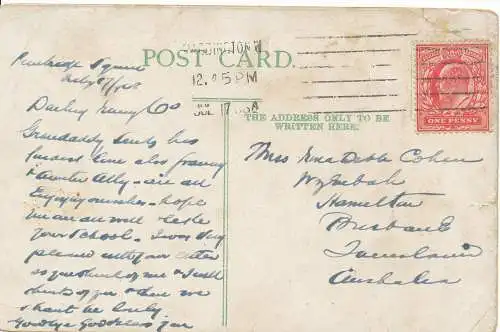 Pembridge Square
July 17/08
POST CARD.
PADDINGTON W
12.45 PM
JUL 17 08
THE ADDRESS ONLY TO BE
WRITTEN HERE.
ONE PENNY
Darling
Grandaddy sends his
fondest love also granny
& Auntie Ally - we are all
enjoying ourselves - hope
you are all well & like
your School. I was very
pleased with your letter
&
think of you & then we
shant be lonely
Goodbye God bless you
Miss Edna Cohen
Hamilton
Brisbane
Queensland
Australia